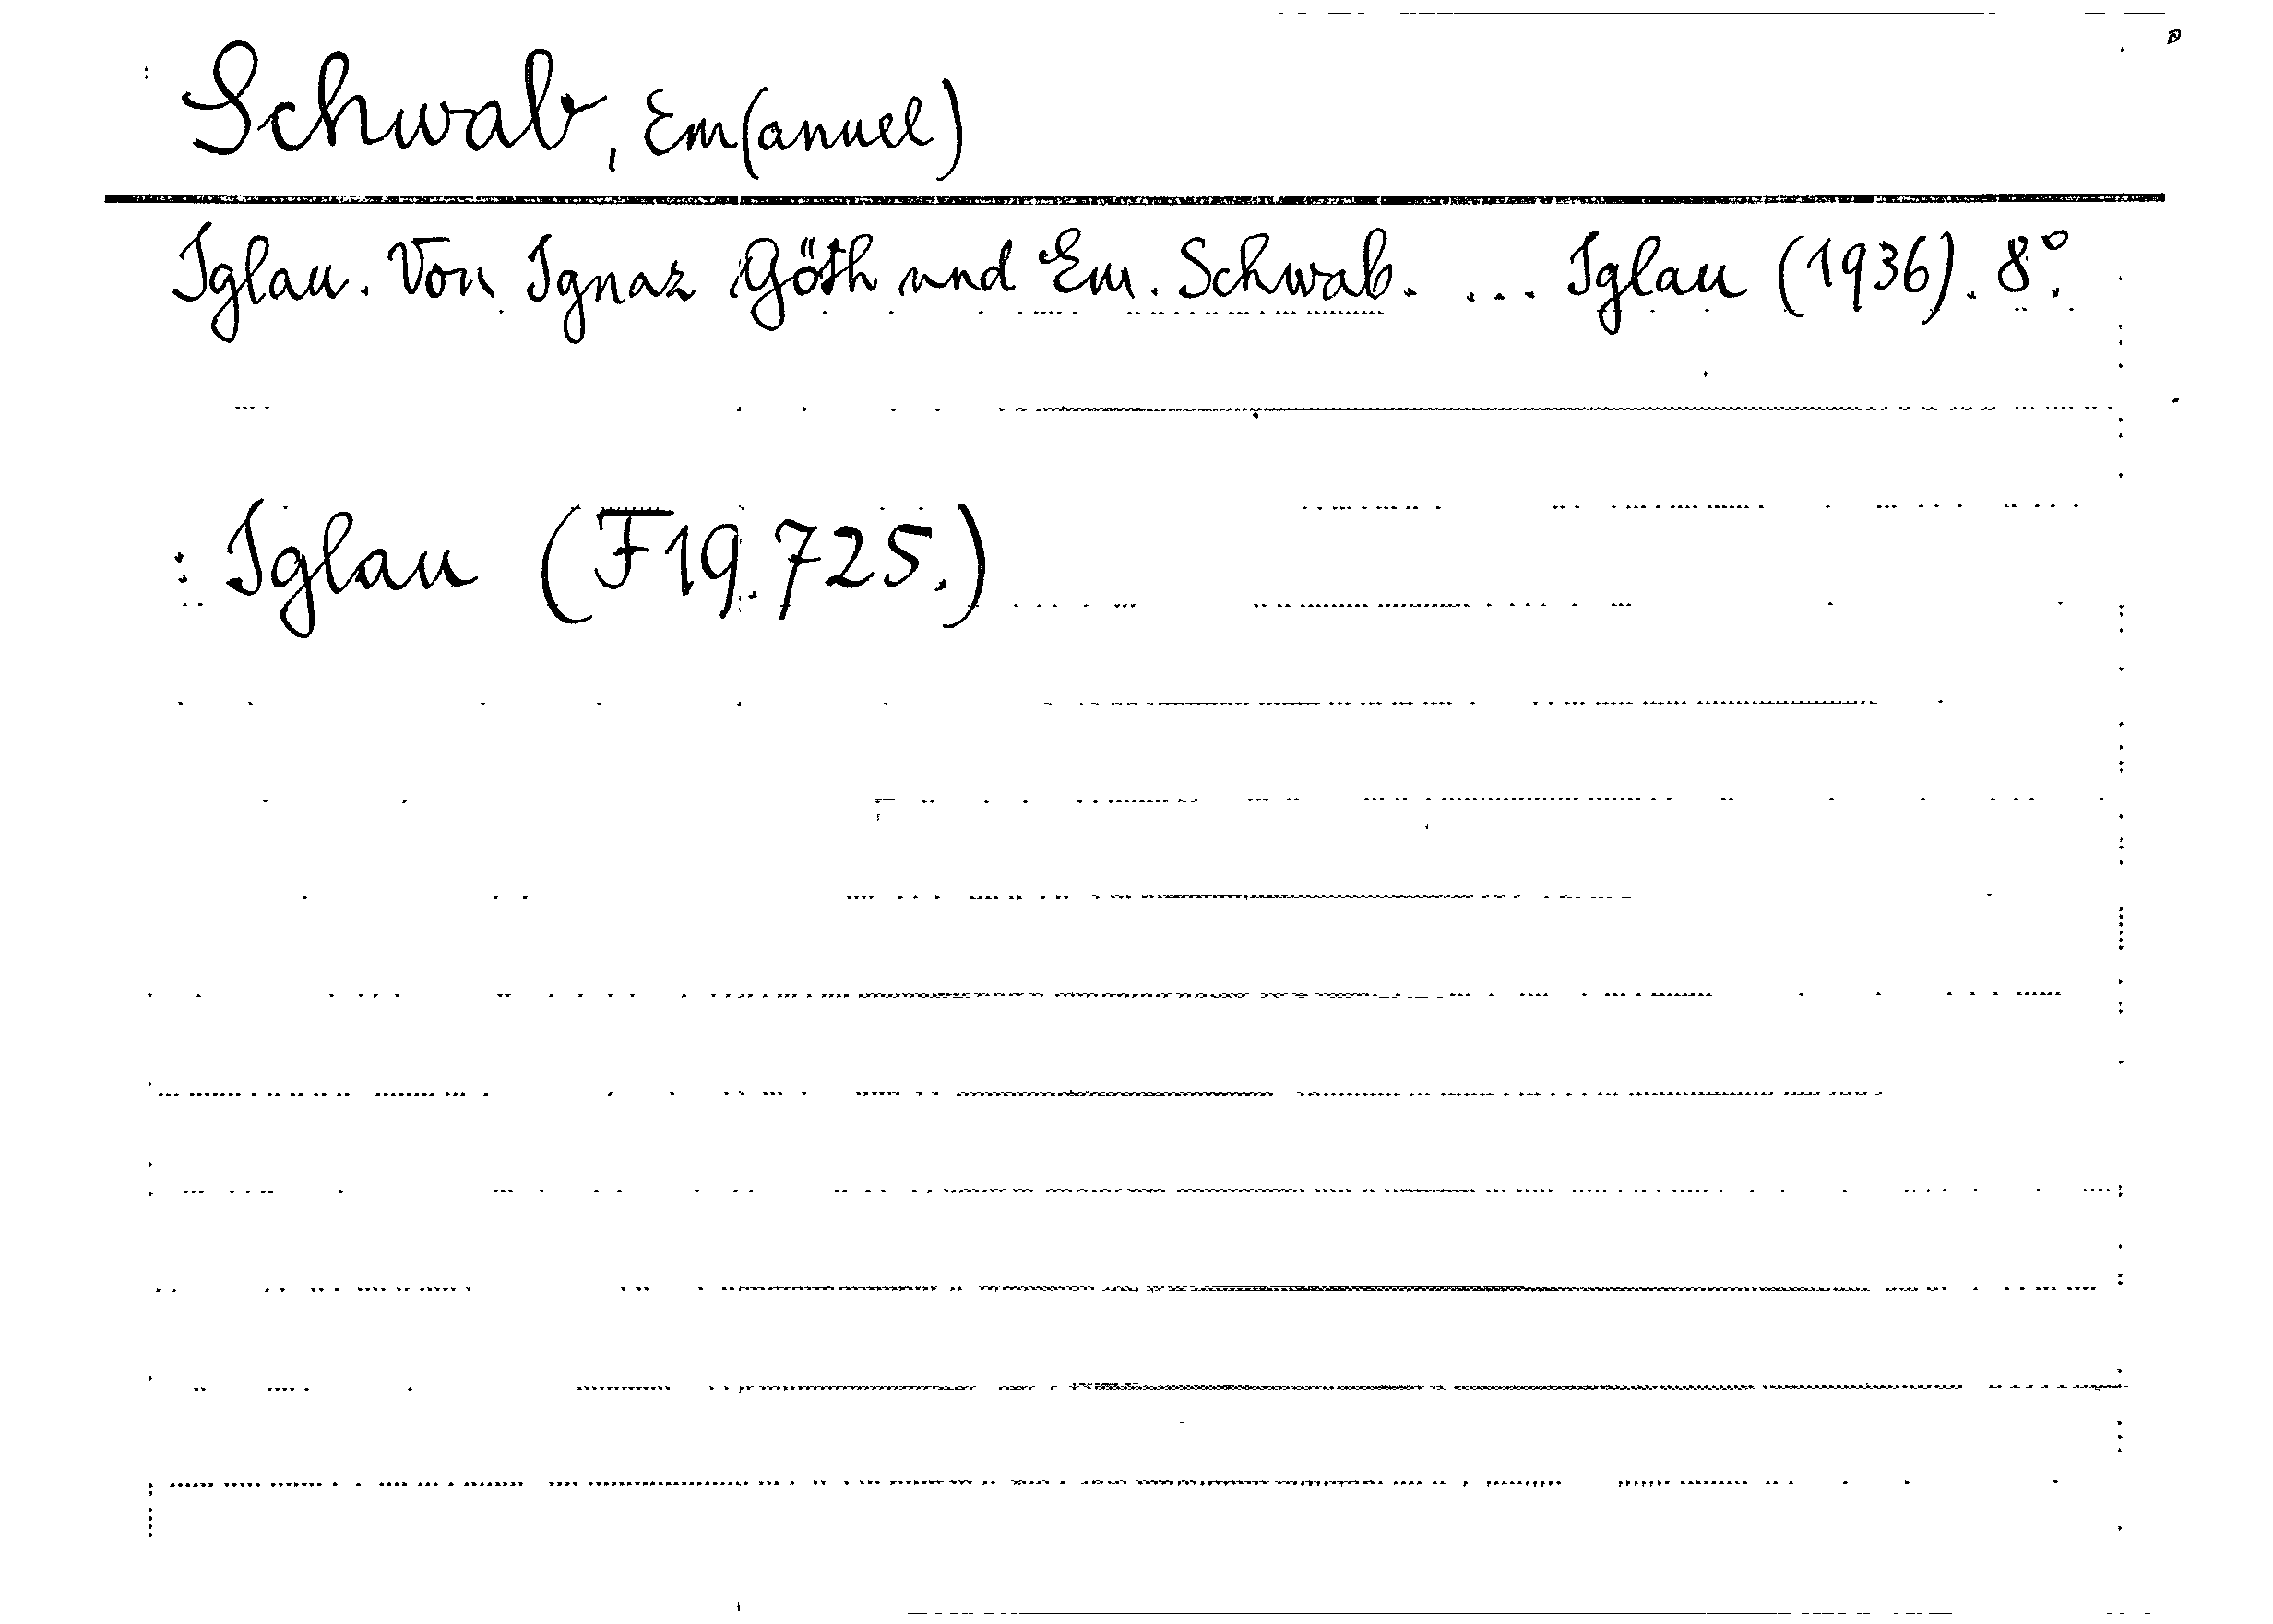 Schwab, Em(anuel)
Iglau. Von Ignaz Göth und Em. Schwab. ... Iglau (1936). 8°.
: Iglau (F19.725.)